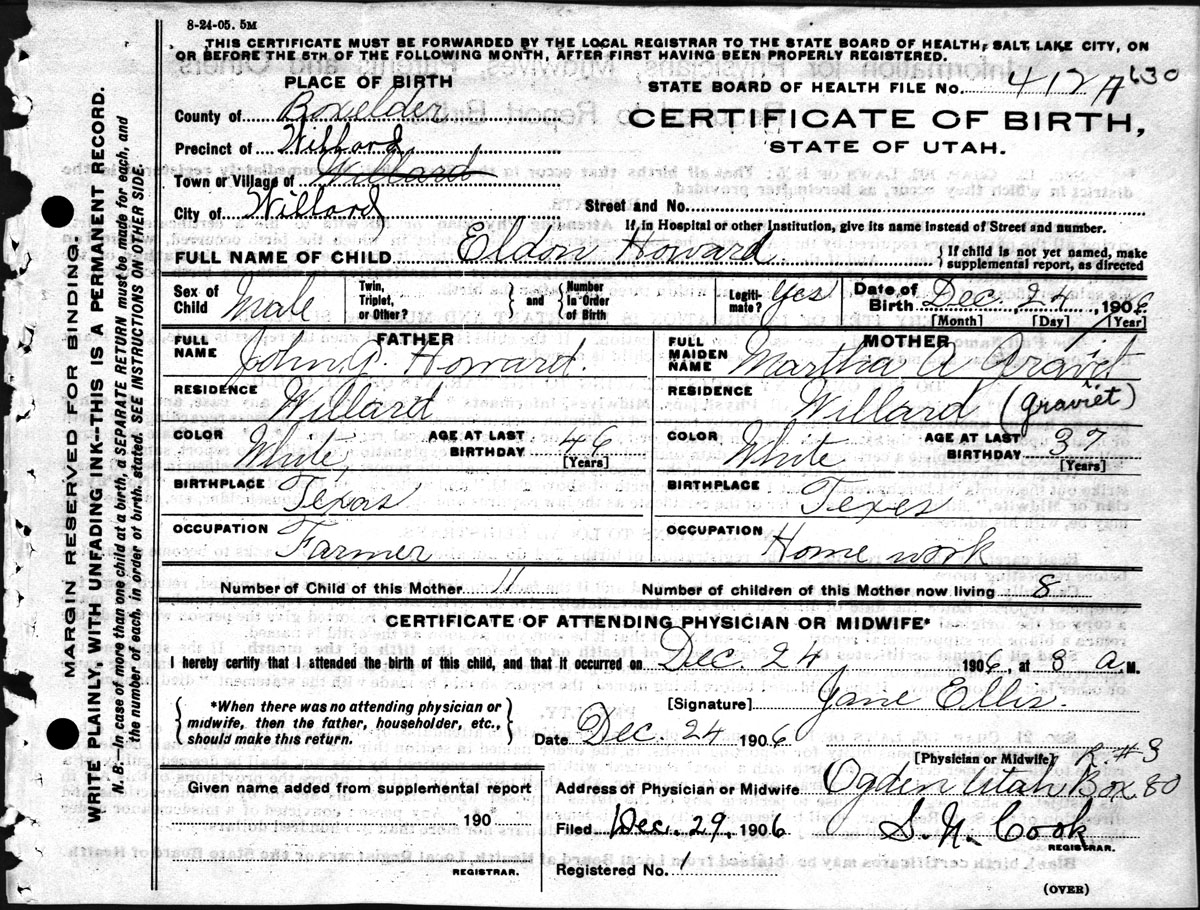 8-24-05. 5M
THIS CERTIFICATE MUST BE FORWARDED BY THE LOCAL REGISTRAR TO THE STATE BOARD OF HEALTH, SALT LAKE CITY, ON
OR BEFORE THE 5TH OF THE FOLLOWING MONTH, AFTER FIRST HAVING BEEN PROPERLY REGISTERED.
MARGIN RESERVED FOR BINDING.
WRITE PLAINLY, WITH UNFADING INK--THIS IS A PERMANENT RECORD.
N. B.--In case of more than one child at a birth, a SEPARATE RETURN must be made for each, and
the number of each, in order of birth, stated. SEE INSTRUCTIONS ON OTHER SIDE.
PLACE OF BIRTH
County of Boxelder
Precinct of Willard
Town or Village of Willard
City of Willard
STATE BOARD OF HEALTH FILE No. 412 A 630
CERTIFICATE OF BIRTH,
STATE OF UTAH.
Street and No.
If in Hospital or other Institution, give its name instead of Street and number.
FULL NAME OF CHILD Eldon Howard
If child is not yet named, make
supplemental report, as directed
Sex of Child Male
Twin, Triplet, or Other?
and
Number in Order of Birth
Legitimate? Yes
Date of Birth Dec. 24 1906
[Month] [Day] [Year]
FATHER
FULL NAME John G. Howard.
RESIDENCE Willard
COLOR White
AGE AT LAST BIRTHDAY 46
[Years]
BIRTHPLACE Texas
OCCUPATION Farmer
MOTHER
FULL MAIDEN NAME Martha A Gravit
RESIDENCE Willard (Graviet)
COLOR White
AGE AT LAST BIRTHDAY 37
[Years]
BIRTHPLACE Texes
OCCUPATION Home work
Number of Child of this Mother 11
Number of children of this Mother now living 8
CERTIFICATE OF ATTENDING PHYSICIAN OR MIDWIFE*
I hereby certify that I attended the birth of this child, and that it occurred on Dec. 24, 1906, at 3 a M.
*When there was no attending physician or
midwife, then the father, householder, etc.,
should make this return.
[Signature] Jane Ellis.
Date Dec 24 1906
[Physician or Midwife] R. #3
Given name added from supplemental report
190
REGISTRAR.
Address of Physician or Midwife Ogden Utah Box 80
Filed Dec. 29, 1906
S. N. Cook
REGISTRAR.
Registered No. 1
(OVER)